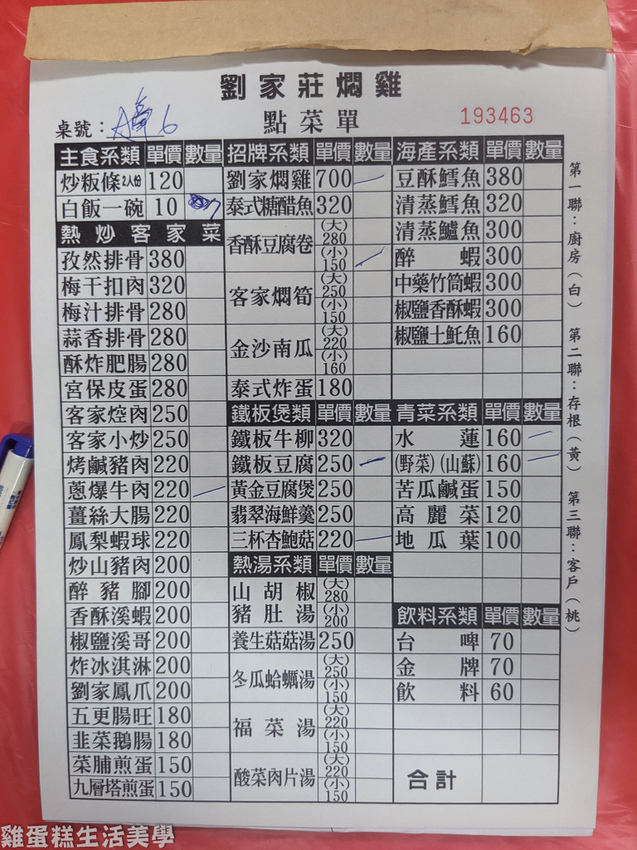 劉家莊燜雞
桌號：
點菜單
193463
主食系類 單價 數量
炒粄條2人份 120
白飯一碗 10
熱炒客家菜
孜然排骨 380
梅干扣肉 320
梅汁排骨 280
蒜香排骨 280
酥炸肥腸 280
宮保皮蛋 280
客家焢肉 250
客家小炒 250
烤鹹豬肉 220
蔥爆牛肉 220
薑絲大腸 220
鳳梨蝦球 220
炒山豬肉 200
醉豬腳 200
香酥溪蝦 200
椒鹽溪哥 200
炸冰淇淋 200
劉家鳳爪 200
五更腸旺 180
韭菜鵝腸 180
菜脯煎蛋 150
九層塔煎蛋 150
招牌系類 單價 數量
劉家燜雞 700
泰式糖醋魚 320
香酥豆腐卷 (大) 280 (小) 150
客家燜筍 (大) 250 (小) 150
金沙南瓜 (大) 220 (小) 160
泰式炸蛋 180
鐵板煲類 單價 數量
鐵板牛柳 320
鐵板豆腐 250
黃金豆腐煲 250
翡翠海鮮羹 250
三杯杏鮑菇 220
熱湯系類 單價 數量
山胡椒豬肚湯 (大) 280 (小) 200
養生菇菇湯 250
冬瓜蛤蠣湯 (大) 250 (小) 150
福菜湯 (大) 220 (小) 150
酸菜肉片湯 (大) 220 (小) 150
海產系類 單價 數量
豆酥鱈魚 380
清蒸鱈魚 320
清蒸鱸魚 300
醉蝦 300
中藥竹筒蝦 300
椒鹽香酥蝦 300
椒鹽土魠魚 160
青菜系類 單價 數量
水蓮 160
(野菜)(山蘇) 160
苦瓜鹹蛋 150
高麗菜 120
地瓜葉 100
飲料系類 單價 數量
台啤 70
金牌 70
飲料 60
合計
第一聯：廚房（白） 第二聯：存根（黃） 第三聯：客戶（桃）
雞蛋糕生活美學